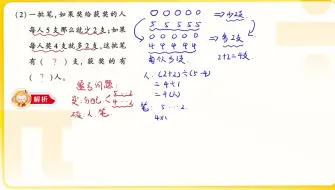 (2)一批笔,如果奖给获奖的人
每人5支那么就少2支;如果
每人奖4支就多2支,这批笔
有( ? )支,获奖的有
( ? )人。
解析
盈亏问题:
5…2
4…2
人、笔
0 0 0 0 0 ⇒少2支
5 5 5 5 5
0 0 0 0 0 ⇒多2支
4 4 4 4 4
2+2=4支
人:(2+2)÷(5-4)
=4÷1
=4(人)
笔: 5…2
4×